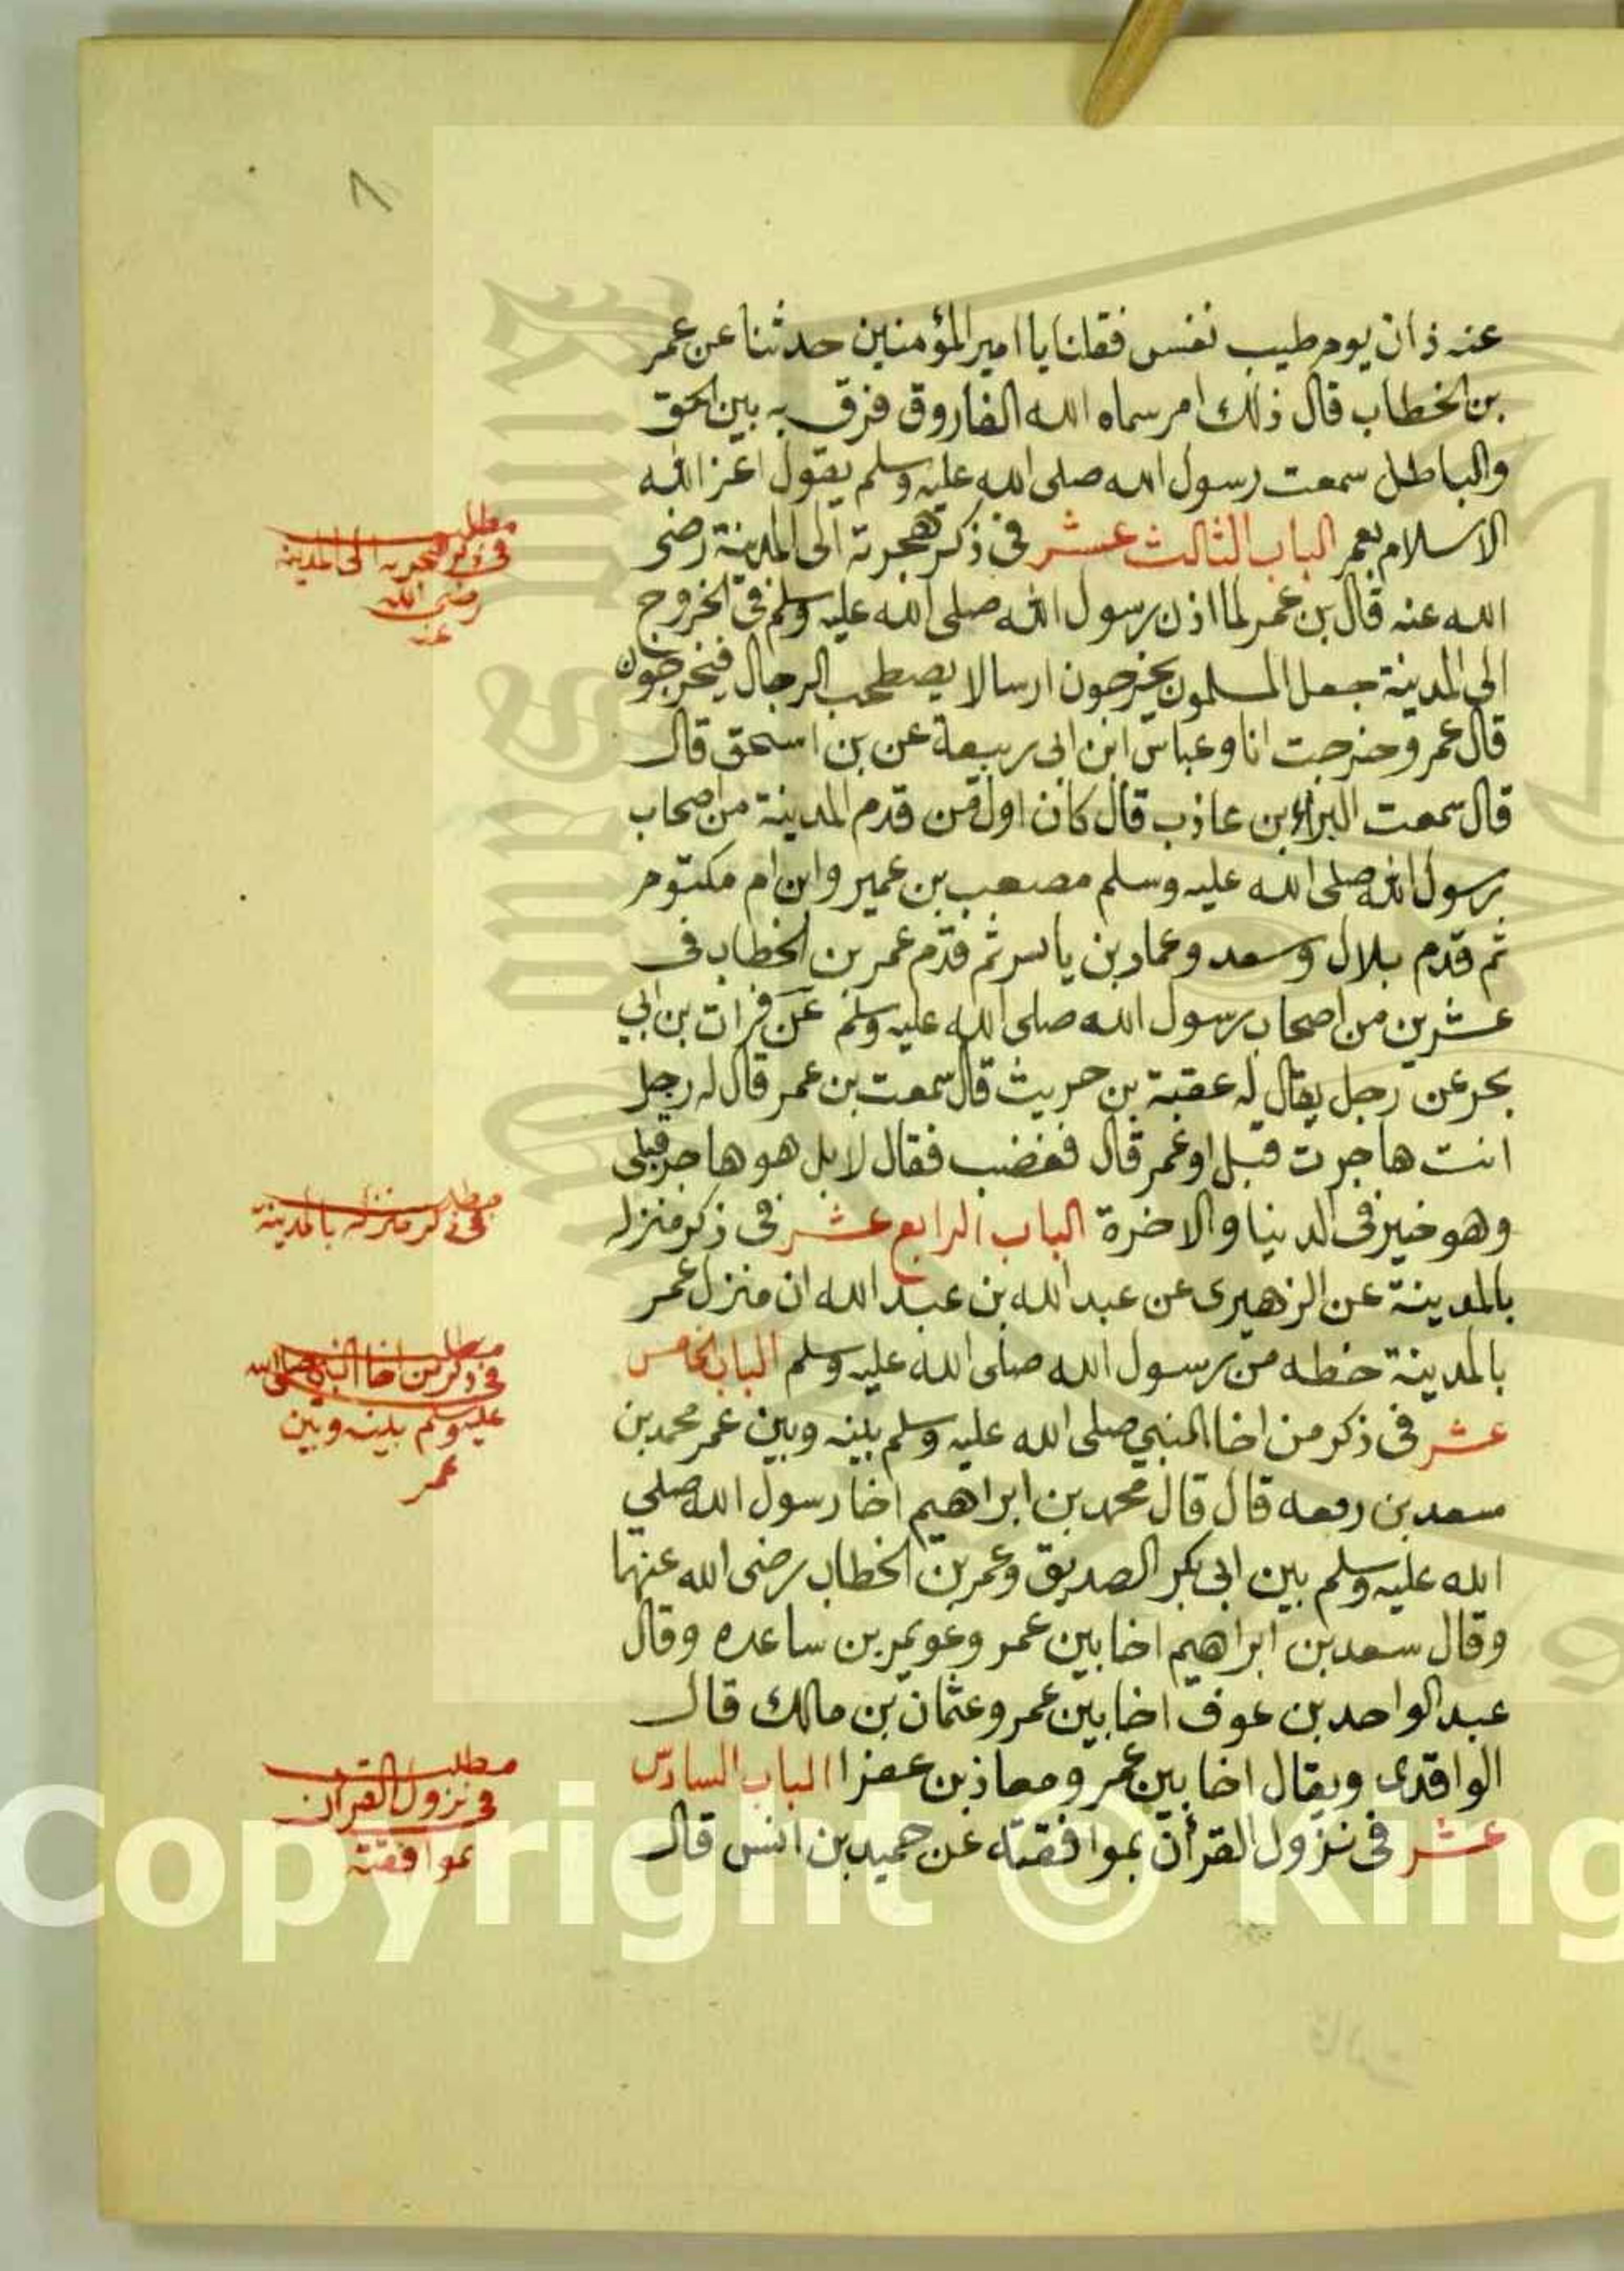 ٨
عنه ذات يوم طيب نفس فقلنا يا امير المؤمنين حدثنا عن عمر
بن الخطاب قال ذلك امر سماه الله الفاروق فرق به بين الحق
والباطل سمعت رسول الله صلى الله عليه وسلم يقول اعز الله
الاسلام بعمر الباب الثالث عشر فى ذكر هجرته الى المدينة رضى
الله عنه قال بن عمر لما اذن رسول الله صلى الله عليه وسلم فى الخروج
الى المدينة جعل المسلمون يخرجون ارسالا يصطحب الرجال فيخرجون
قال عمر وخرجت انا وعباس ابن ابى ربيعة عن بن اسحق قال
قال سمعت البراء بن عاذب قال كان اول من قدم المدينة من اصحاب
رسول الله صلى الله عليه وسلم مصعب بن عمير وابن ام مكتوم
ثم قدم بلال وسعد وعمار بن ياسر ثم قدم عمر بن الخطاب فى
عشرين من اصحاب رسول الله صلى الله عليه وسلم عن فرات بن ابي
بحر عن رجل يقال له عقبة بن حريث قال سمعت بن عمر قال له رجل
انت هاجرت قبل او عمر قال فغضب فقال لا بل هو هاجر قبلى
وهو خير فى الدنيا والاخرة الباب الرابع عشر فى ذكر منزله
بالمدينة عن الزهيرى عن عبد الله بن عبد الله ان منزل عمر
بالمدينة خطه من رسول الله صلى الله عليه وسلم الباب الخامس
عشر فى ذكر من اخا النبي صلى الله عليه وسلم بينه وبين عمر محمد بن
سعد بن رفعه قال قال محمد بن ابراهيم اخا رسول الله صلي
الله عليه وسلم بين ابى بكر الصديق وعمر بن الخطاب رضى الله عنهما
وقال سعد بن ابراهيم اخا بين عمر وعويمر بن ساعده وقال
عبد الواحد بن عوف اخا بين عمر وعثمان بن مالك قال
الواقدى ويقال اخا بين عمر ومعاذ بن عفرا الباب السادس
عشر فى نزول القرأن بموافقته عن حميد بن انس قال
مطلب
فى ذكر هجرته الى المدينة
رضى الله
عنه
مطلب
فى ذكر منزله بالمدينة
مطلب
فى ذكر من اخا النبي صلى الله
عليه وسلم بينه وبين
عمر
مطلب
فى نزول القرآن
بموافقته
قال
Copyright © King